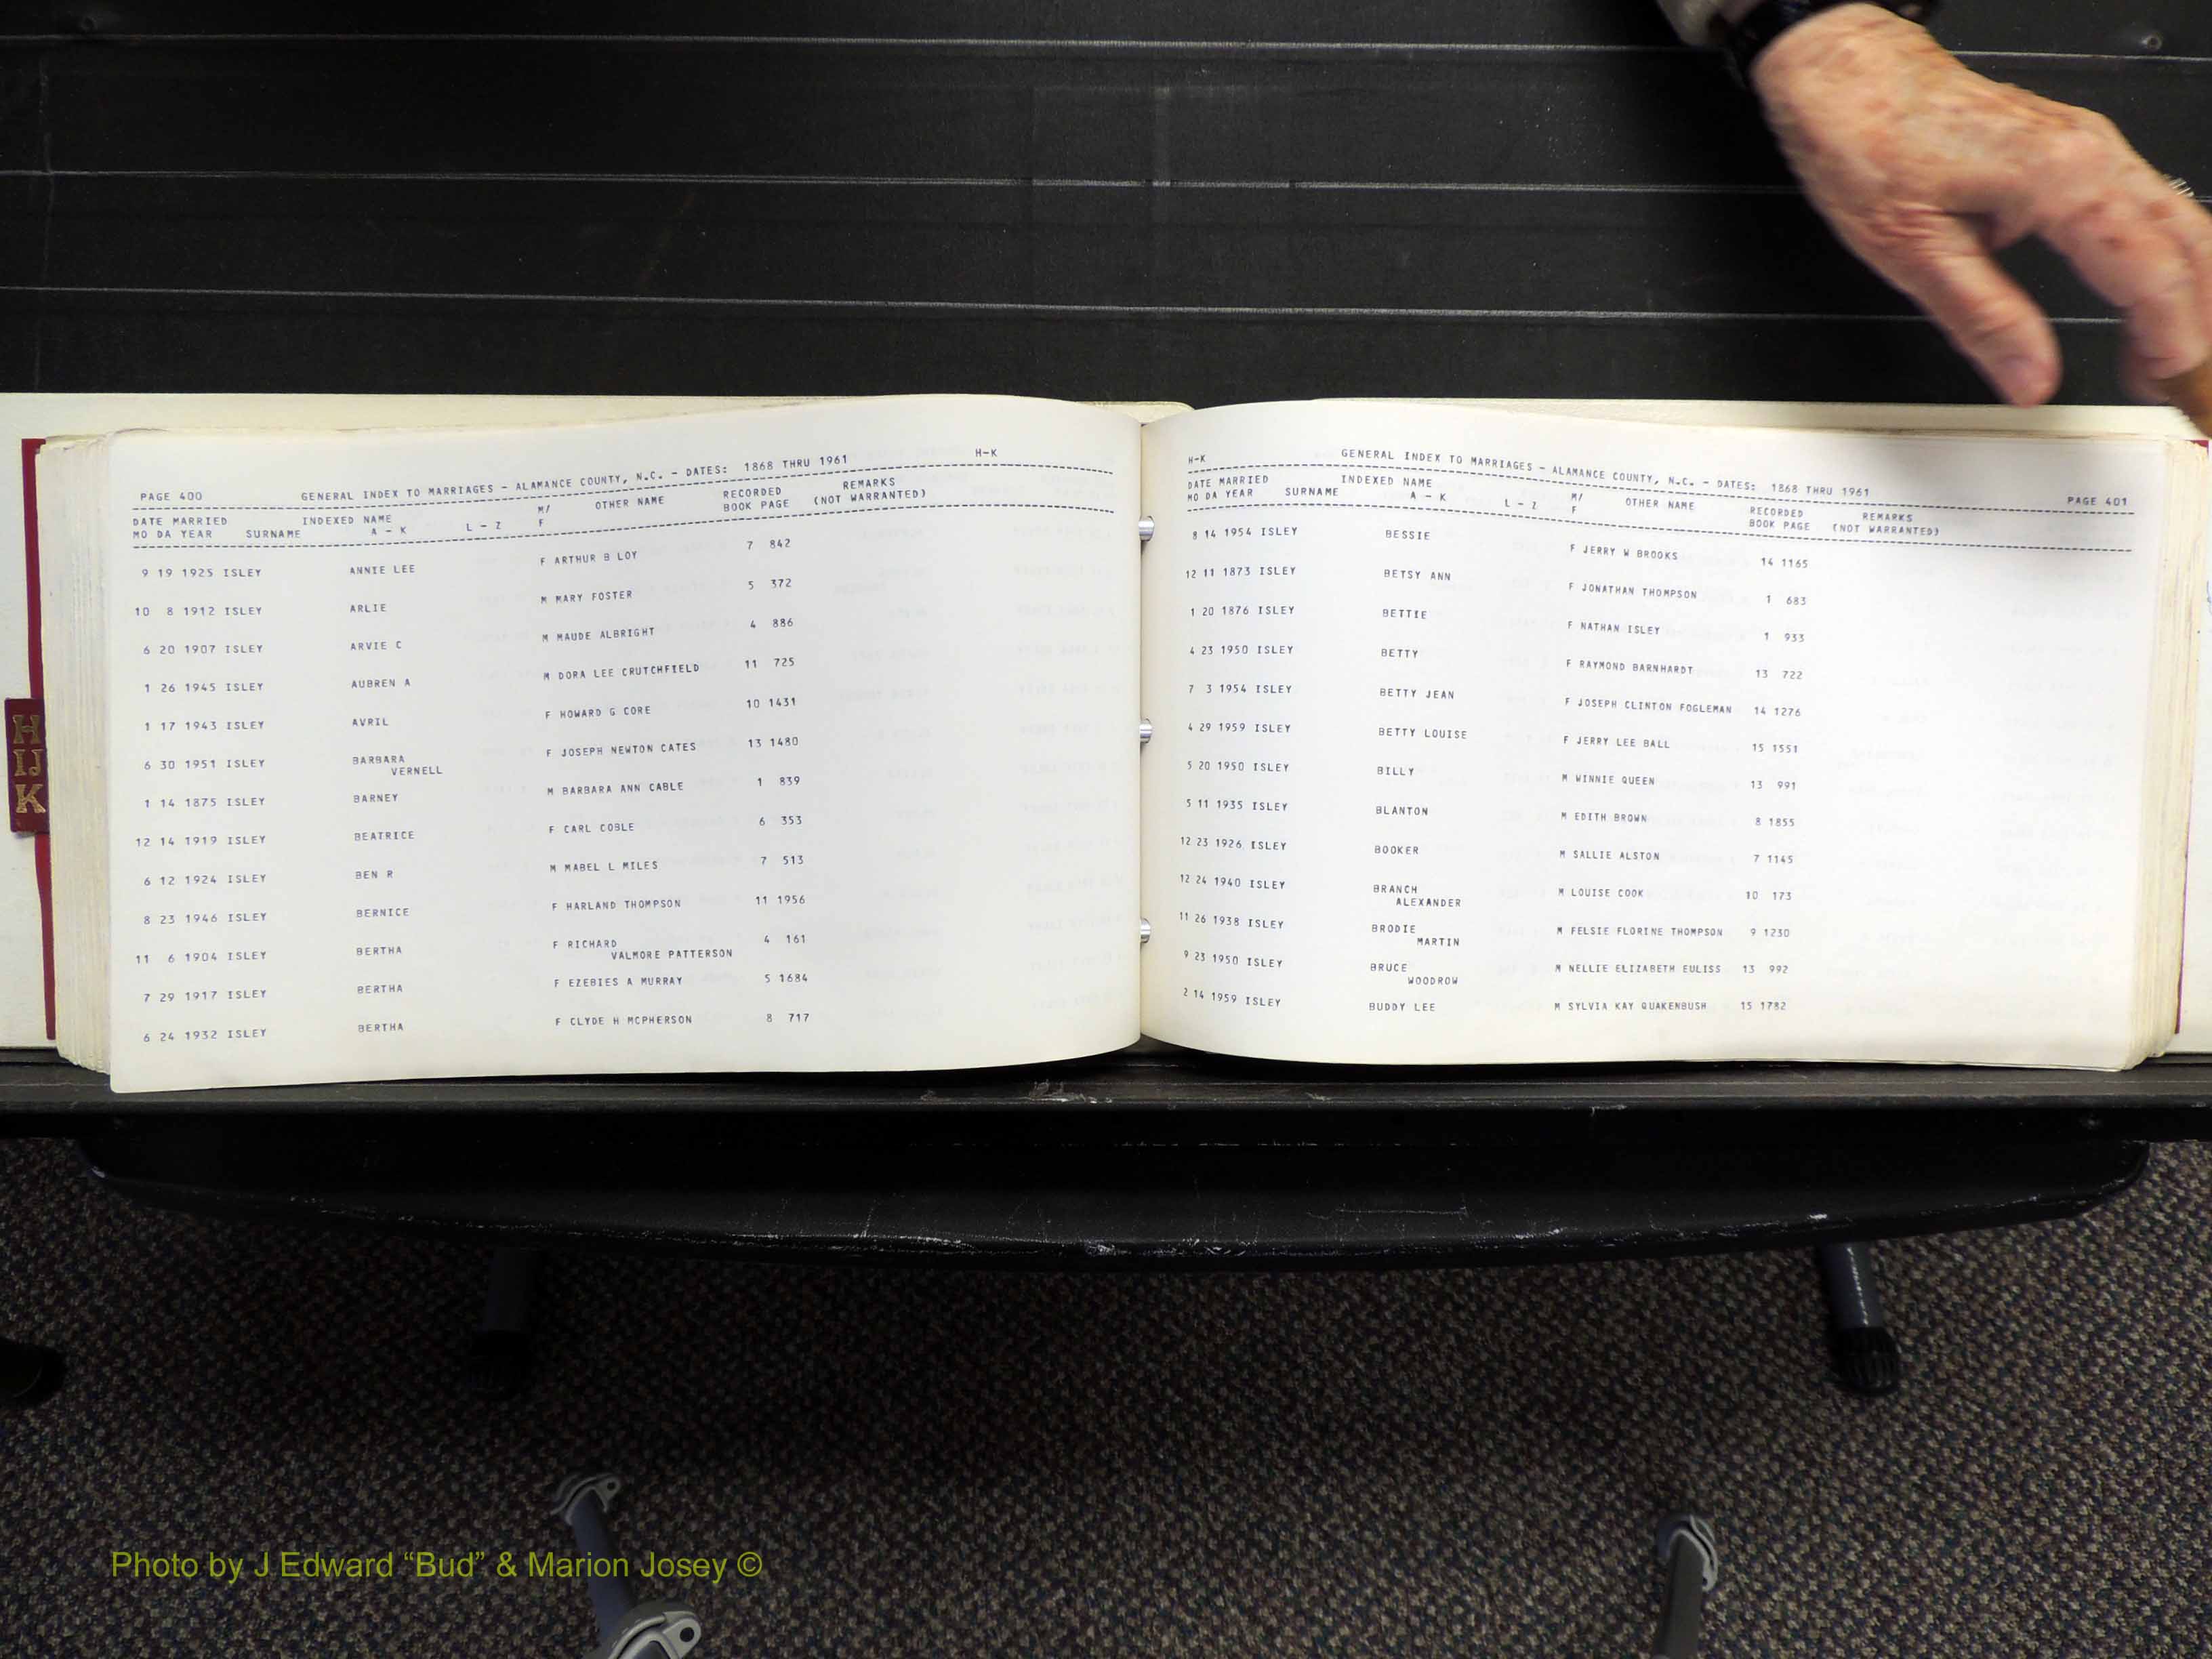 PAGE 400 GENERAL INDEX TO MARRIAGES - ALAMANCE COUNTY, N.C. - DATES: 1868 THRU 1961 H-K
DATE MARRIED INDEXED NAME M/ OTHER NAME RECORDED REMARKS
MO DA YEAR SURNAME A - K L - Z F BOOK PAGE (NOT WARRANTED)
9 19 1925 ISLEY ANNIE LEE F ARTHUR B LOY 7 842
10 8 1912 ISLEY ARLIE M MARY FOSTER 5 372
6 20 1907 ISLEY ARVIE C M MAUDE ALBRIGHT 4 886
1 26 1945 ISLEY AUBREN A M DORA LEE CRUTCHFIELD 11 725
1 17 1943 ISLEY AVRIL F HOWARD G CORE 10 1431
6 30 1951 ISLEY BARBARA F JOSEPH NEWTON CATES 13 1480
VERNELL
1 14 1875 ISLEY BARNEY M BARBARA ANN CABLE 1 839
12 14 1919 ISLEY BEATRICE F CARL COBLE 6 353
6 12 1924 ISLEY BEN R M MABEL L MILES 7 513
8 23 1946 ISLEY BERNICE F HARLAND THOMPSON 11 1956
11 6 1904 ISLEY BERTHA F RICHARD 4 161
VALMORE PATTERSON
7 29 1917 ISLEY BERTHA F EZEBIES A MURRAY 5 1684
6 24 1932 ISLEY BERTHA F CLYDE H MCPHERSON 8 717
H-K GENERAL INDEX TO MARRIAGES - ALAMANCE COUNTY, N.C. - DATES: 1868 THRU 1961 PAGE 401
DATE MARRIED INDEXED NAME M/ OTHER NAME RECORDED REMARKS
MO DA YEAR SURNAME A - K L - Z F BOOK PAGE (NOT WARRANTED)
8 14 1954 ISLEY BESSIE F JERRY W BROOKS 14 1165
12 11 1873 ISLEY BETSY ANN F JONATHAN THOMPSON 1 683
1 20 1876 ISLEY BETTIE F NATHAN ISLEY 1 933
4 23 1950 ISLEY BETTY F RAYMOND BARNHARDT 13 722
7 3 1954 ISLEY BETTY JEAN F JOSEPH CLINTON FOGLEMAN 14 1276
4 29 1959 ISLEY BETTY LOUISE F JERRY LEE BALL 15 1551
5 20 1950 ISLEY BILLY M WINNIE QUEEN 13 991
5 11 1935 ISLEY BLANTON M EDITH BROWN 8 1855
12 23 1926 ISLEY BOOKER M SALLIE ALSTON 7 1145
12 24 1940 ISLEY BRANCH M LOUISE COOK 10 173
ALEXANDER
11 26 1938 ISLEY BRODIE M FELSIE FLORINE THOMPSON 9 1230
MARTIN
9 23 1950 ISLEY BRUCE M NELLIE ELIZABETH EULISS 13 992
WOODROW
2 14 1959 ISLEY BUDDY LEE M SYLVIA KAY QUAKENBUSH 15 1782
H
IJ
K
Photo by J Edward “Bud” & Marion Josey ©